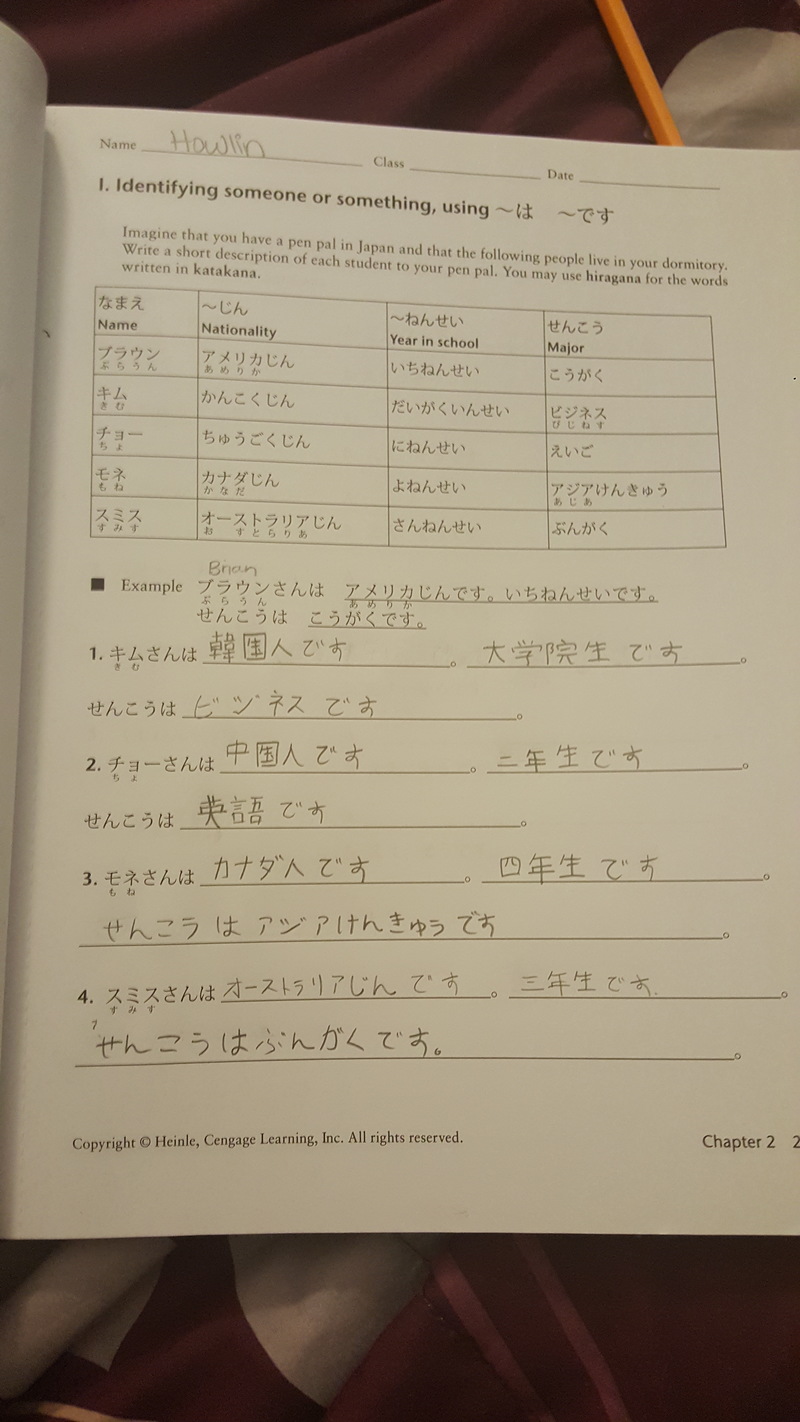 Name Howlin Class Date
I. Identifying someone or something, using 〜は 〜です
Imagine that you have a pen pal in Japan and that the following people live in your dormitory.
Write a short description of each student to your pen pal. You may use hiragana for the words
written in katakana.
なまえ 〜じん 〜ねんせい せんこう
Name Nationality Year in school Major
ブラウン アメリカじん いちねんせい こうがく
ぶらうん あめりか
キム かんこくじん だいがくいんせい ビジネス
きむ びじねす
チョー ちゅうごくじん にねんせい えいご
ちょ
モネ カナダじん よねんせい アジアけんきゅう
もね かなだ あじあ
スミス オーストラリアじん さんねんせい ぶんがく
すみす お すとらりあ
Brian
■ Example ブラウンさんは アメリカじんです。いちねんせいです。
ぶらうん あめりか
せんこうは こうがくです。
1. キムさんは 韓国人です。 大学院生です。
きむ
せんこうは ビジネスです。
2. チョーさんは 中国人です。 二年生です。
ちょ
せんこうは 英語です。
3. モネさんは カナダ人です。 四年生です。
もね
せんこうはアジアけんきゅうです。
4. スミスさんは オーストラリアじんです。 三年生です.。
すみす
せんこうはぶんがくです。。
Copyright © Heinle, Cengage Learning, Inc. All rights reserved. Chapter 2 2